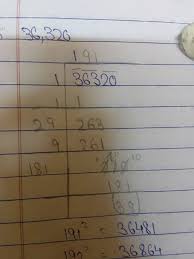 36,320
191
1 36320
1 1
29 263
9 261
181
181
191² = 36481
192² = 36864